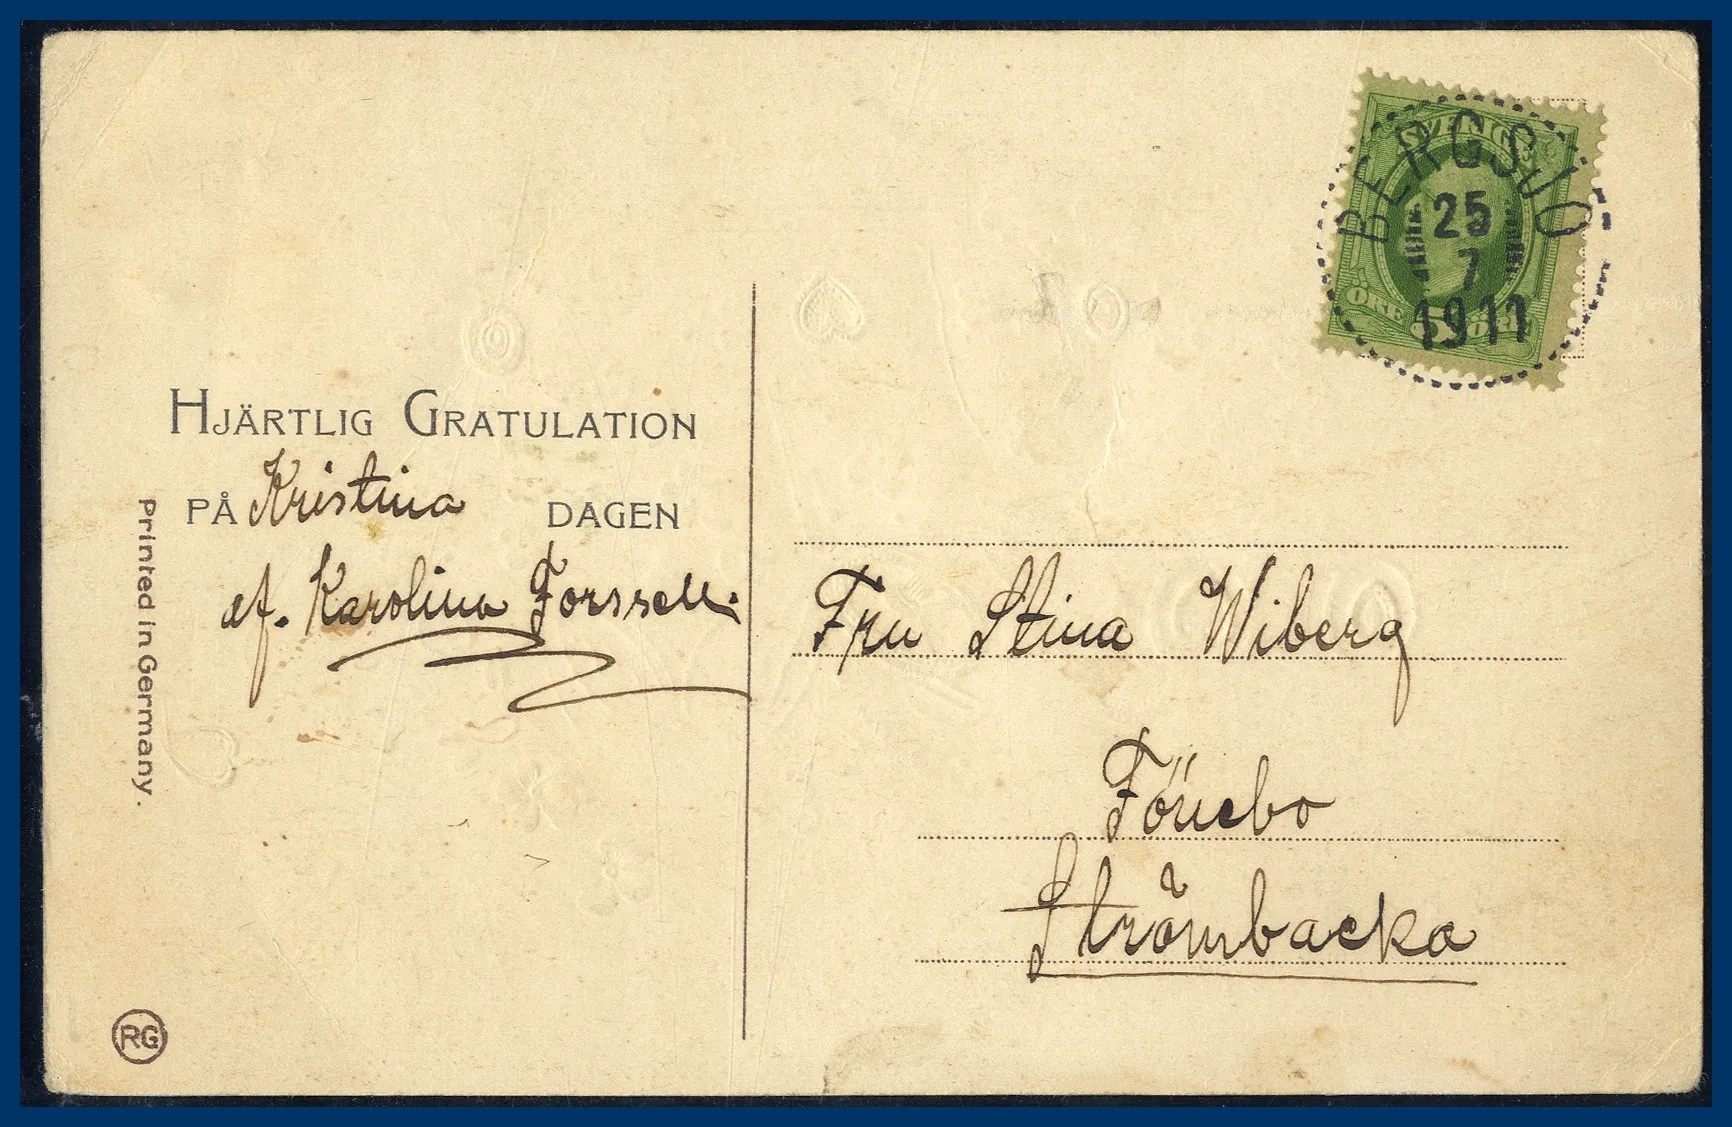 HJÄRTLIG GRATULATION
PÅ Kristina DAGEN
af. Karolina Forssell.
Printed in Germany.
RG
SVERIGE
ÖRE 5 ÖRE
BERGSJÖ
25
7
1911
Fru Stina Wiberg
Fönebo
Strömbacka